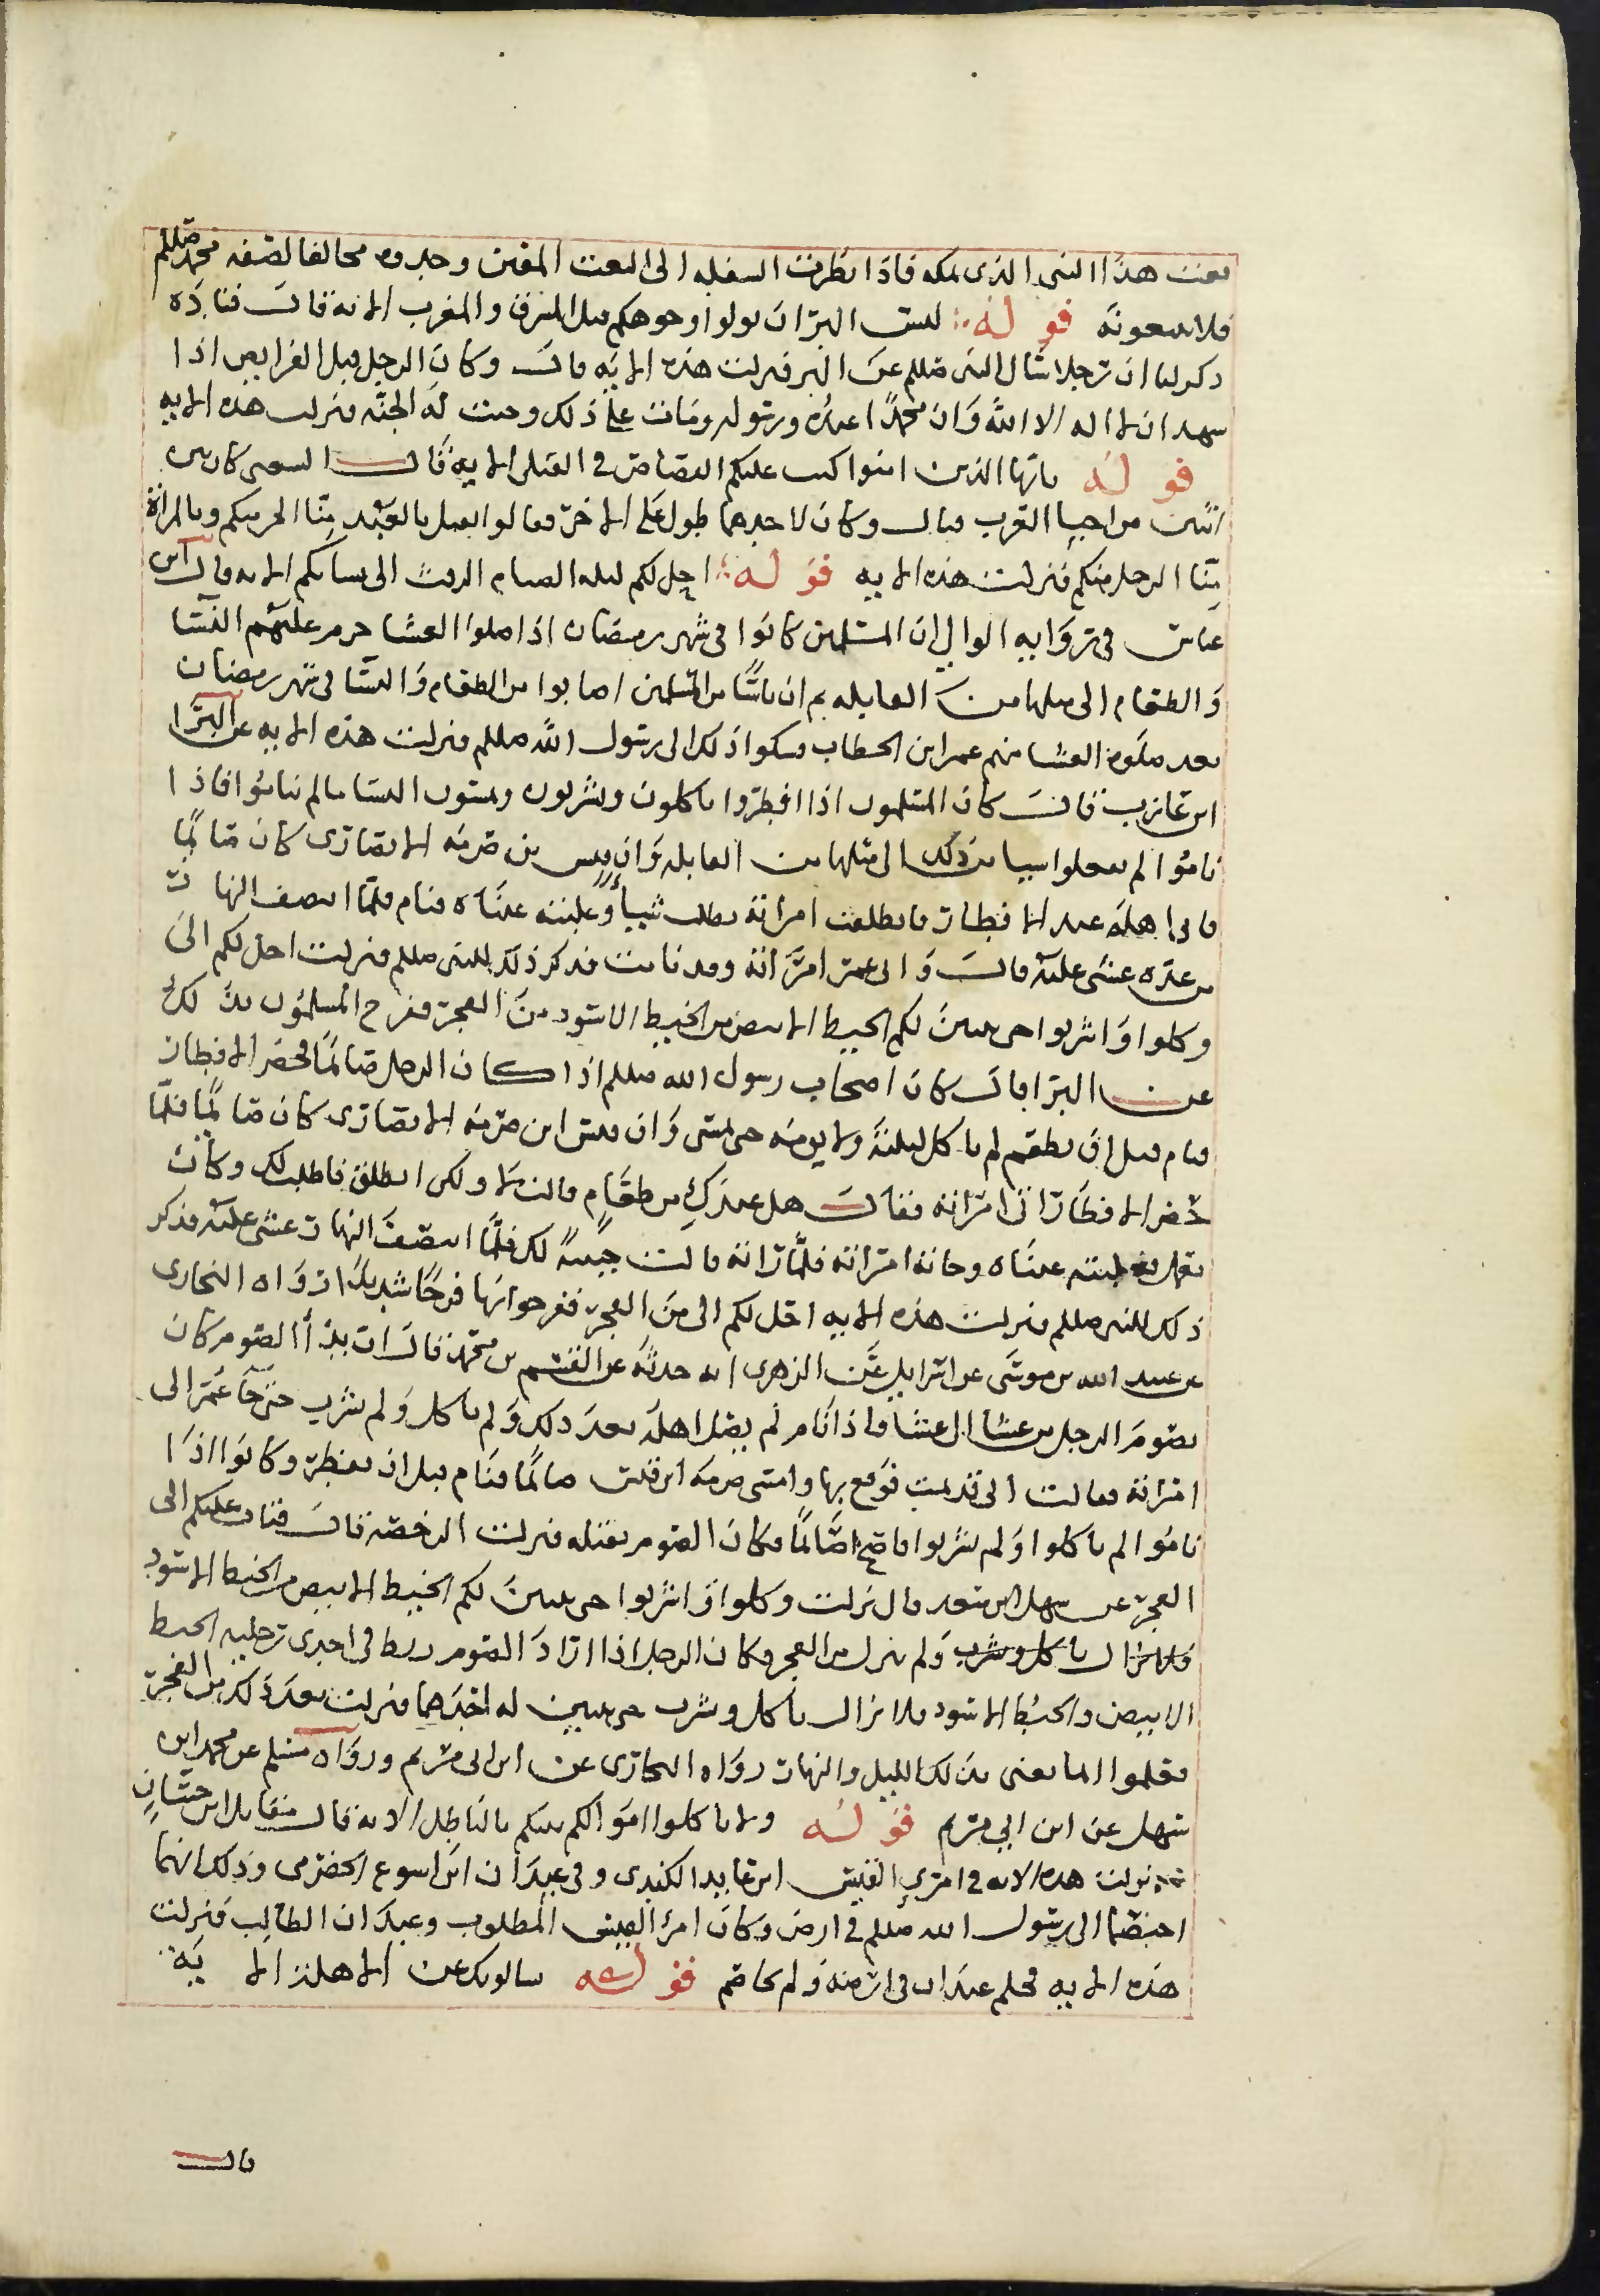 نعت هذا النبي الذى بمكه فاذا نظرت السفله الى النعت المغير وجدوه مخالفا لصفه محمد صللم
فلا يتبعونه قوله ليس البر ان تولوا وجوهكم قبل المشرق والمغرب الايه قال قتاده
ذكر لنا ان رجلا سال النبى صللم عن البر فنزلت هذه الايه قال وكان الرجل قبل الفرايض اذا
شهد ان لا اله الا الله وان محمدا عبده ورسوله ومات على ذلك وجبت له الجنه فنزلت هذه الايه
قوله يا ايها الذين امنوا كتب عليكم القصاص في القتلى الايه قال الشعبي كان بين
اثنين من احيا العرب قتال وكان لاحدهما طول على الاخر فقالوا نقتل بالعبد منا الحر منكم وبالمراة
منا الرجل منكم فنزلت هذه الايه قوله احل لكم ليله الصيام الرفث الى نسايكم الايه قال ابن
عباس في روايه الوالبي ان المسلمين كانوا في شهر رمضان اذا صلوا العشا حرم عليهم النسا
والطعام الى مثلها من القابله ثم ان ناسا من المسلمين اصابوا من الطعام والنسا في شهر رمضان
بعد صلوة العشا منهم عمر ابن الخطاب فشكوا ذلك الى رسول الله صللم فنزلت هذه الايه عن البرا
ابن عازب قال كان المسلمون اذا افطروا ياكلون ويشربون ويمسون النسا مالم يناموا فاذا
ناموا لم يفعلوا شيا من ذلك الى مثلها من القابله وان قيس بن صرمه الانصارى كان صائما
فاتى اهله عند الافطار فانطلقت امراته تطلب شيأ وغلبته عيناه فنام فلما انتصف النهار
من غده غشى عليه قال واتى عمر امراته وقد نامت فذكر ذلك للنبى صللم فنزلت احل لكم الى
وكلوا واشربوا حتى يتبين لكم الخيط الابيض من الخيط الاسود من الفجر ففرح المسلمون بذلك
عن البرا قال كان اصحاب رسول الله صللم اذا كان الرجل صائما فحضر الافطار
فنام قبل ان يطعم لم ياكل ليلته ولا يومه حتى يمسى وان قيس ابن صرمه الانصارى كان صائما فلما
حضر الافطار اتى امراته فقال هل عندك من طعام قالت لا ولكن انطلق فاطلب لك وكان
يعمل فغلبته عيناه وجاته امراته فلما راته قالت خيبة لك فلما انتصف النهار غشى عليه فذكر
ذلك للنبي صللم فنزلت هذه الايه احل لكم الى من الفجر ففرحوا بها فرحا شديدا رواه البخارى
عن عبيد الله بن موسى عن اسرايل عن الزهرى انه حدثه عن القسم بن محمد قال ان بدأ الصوم كان
يصوم الرجل من عشا الى عشا فاذا نام لم يصل اهله بعد ذلك ولم ياكل ولم يشرب حتى جا عمر الى
امراته فقالت انى قد نمت فوقع بها وامسى صرمه ابن قيس صائما فنام قبل ان يفطر وكانوا اذا
ناموا لم ياكلوا ولم يشربوا فاصبح صائما وكان الصوم يقتله فنزلت الرخصه قال فتاب عليكم الى
الفجر عن سهل ابن سعد قال نزلت وكلوا واشربوا حتى يتبين لكم الخيط الابيض من الخيط الاسود
فلا يزال ياكل وشرب ولم ينزل من الفجر وكان الرجل اذا اراد الصوم ربط في احدى رجليه الخيط
الابيض والخيط الاسود فلا يزال ياكل وشرب حتى يتبين له احدهما فنزلت بعد ذلك من الفجر
فعلموا انما يعنى بذلك الليل والنهار رواه البخارى عن ابن ابى مريم ورواه مسلم عن محمد ابن
سهل عن ابن ابي مريم قوله ولا تاكلوا اموالكم بينكم بالباطل الايه قال مقاتل ابن حيان
نزلت هذه الايه في امرى القيس ابن عابد الكندى وفي عبدان ابن اسوع الحضرمى وذلك انهما
اختصما الى رسول الله صللم في ارض وكان امرأ القيس المطلوب وعبدان الطالب فنزلت
هذه الايه فحكم عبدان في ارضه ولم يخاصم قوله يسالونك عن الاهله الايه
قال